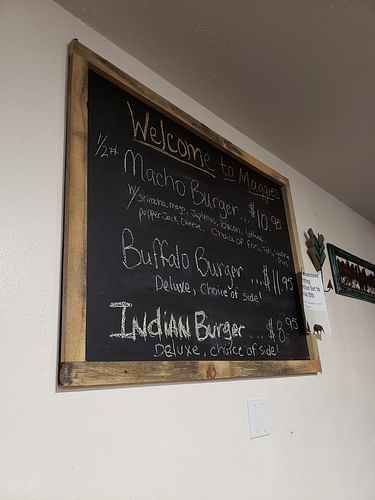 Welcome to Maggies
1/2# Macho Burger ... $10.95
w/ Sriracha mayo, Japlenos, bacon, lettuce
pepper Jack Cheese, Choice of fries,
Buffalo Burger ... $11.95
Deluxe, Choice of side!
INDIAN Burger ... $8.95
Deluxe, choice of side!